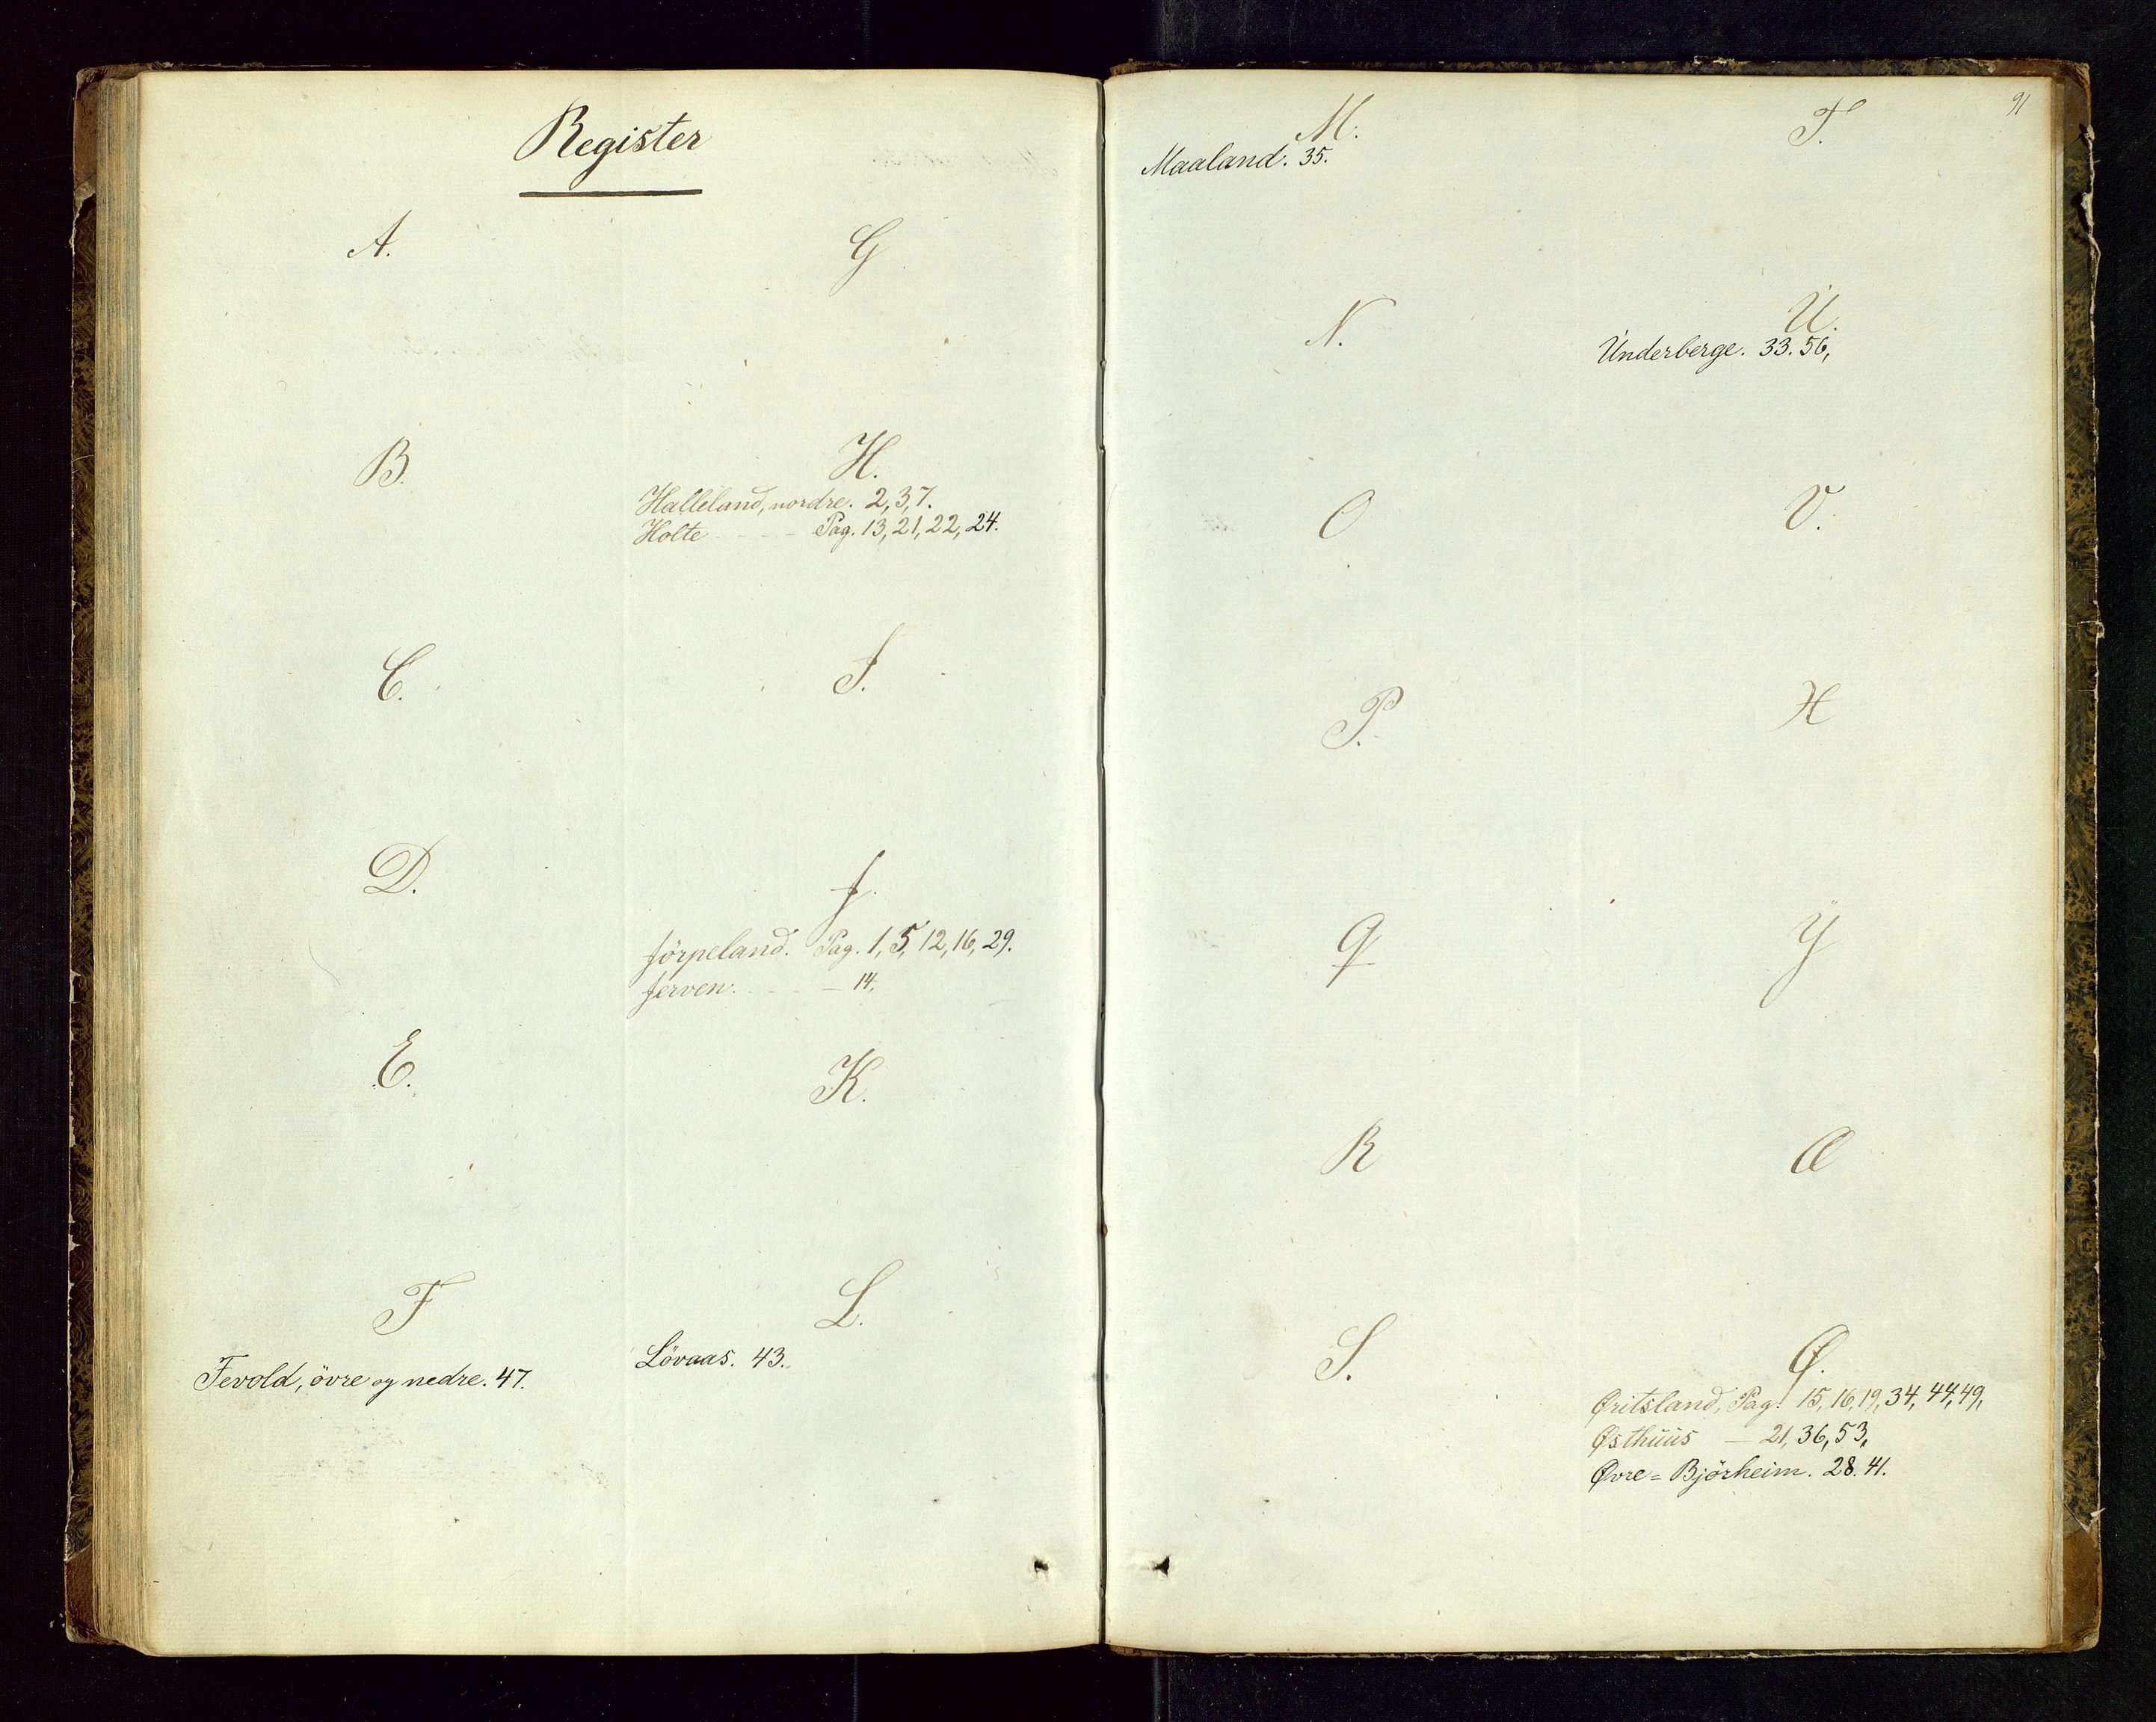 Register
A.
B.
C.
D.
E.
F
Fevold, övre og nedre. 47.
G
H.
Halleland, nordre. 2, 3, 7.
Holte - - - - Pag. 13, 21, 22, 24.
I.
J.
Jörpeland. Pag. 1, 5, 12, 16, 29.
Jerven. - - - — 14.
K.
L.
Lövaas. 43.
91
M.
Maaland. 35.
N.
O
P.
Q
R
S.
T.
U.
Underberge. 33. 56,
V.
X
Y
Æ
Ø.
Øritsland, Pag. 15, 16, 19, 34, 44, 49,
Østhuus — 21, 36, 53,
Øvre = Bjørheim. 28. 41.